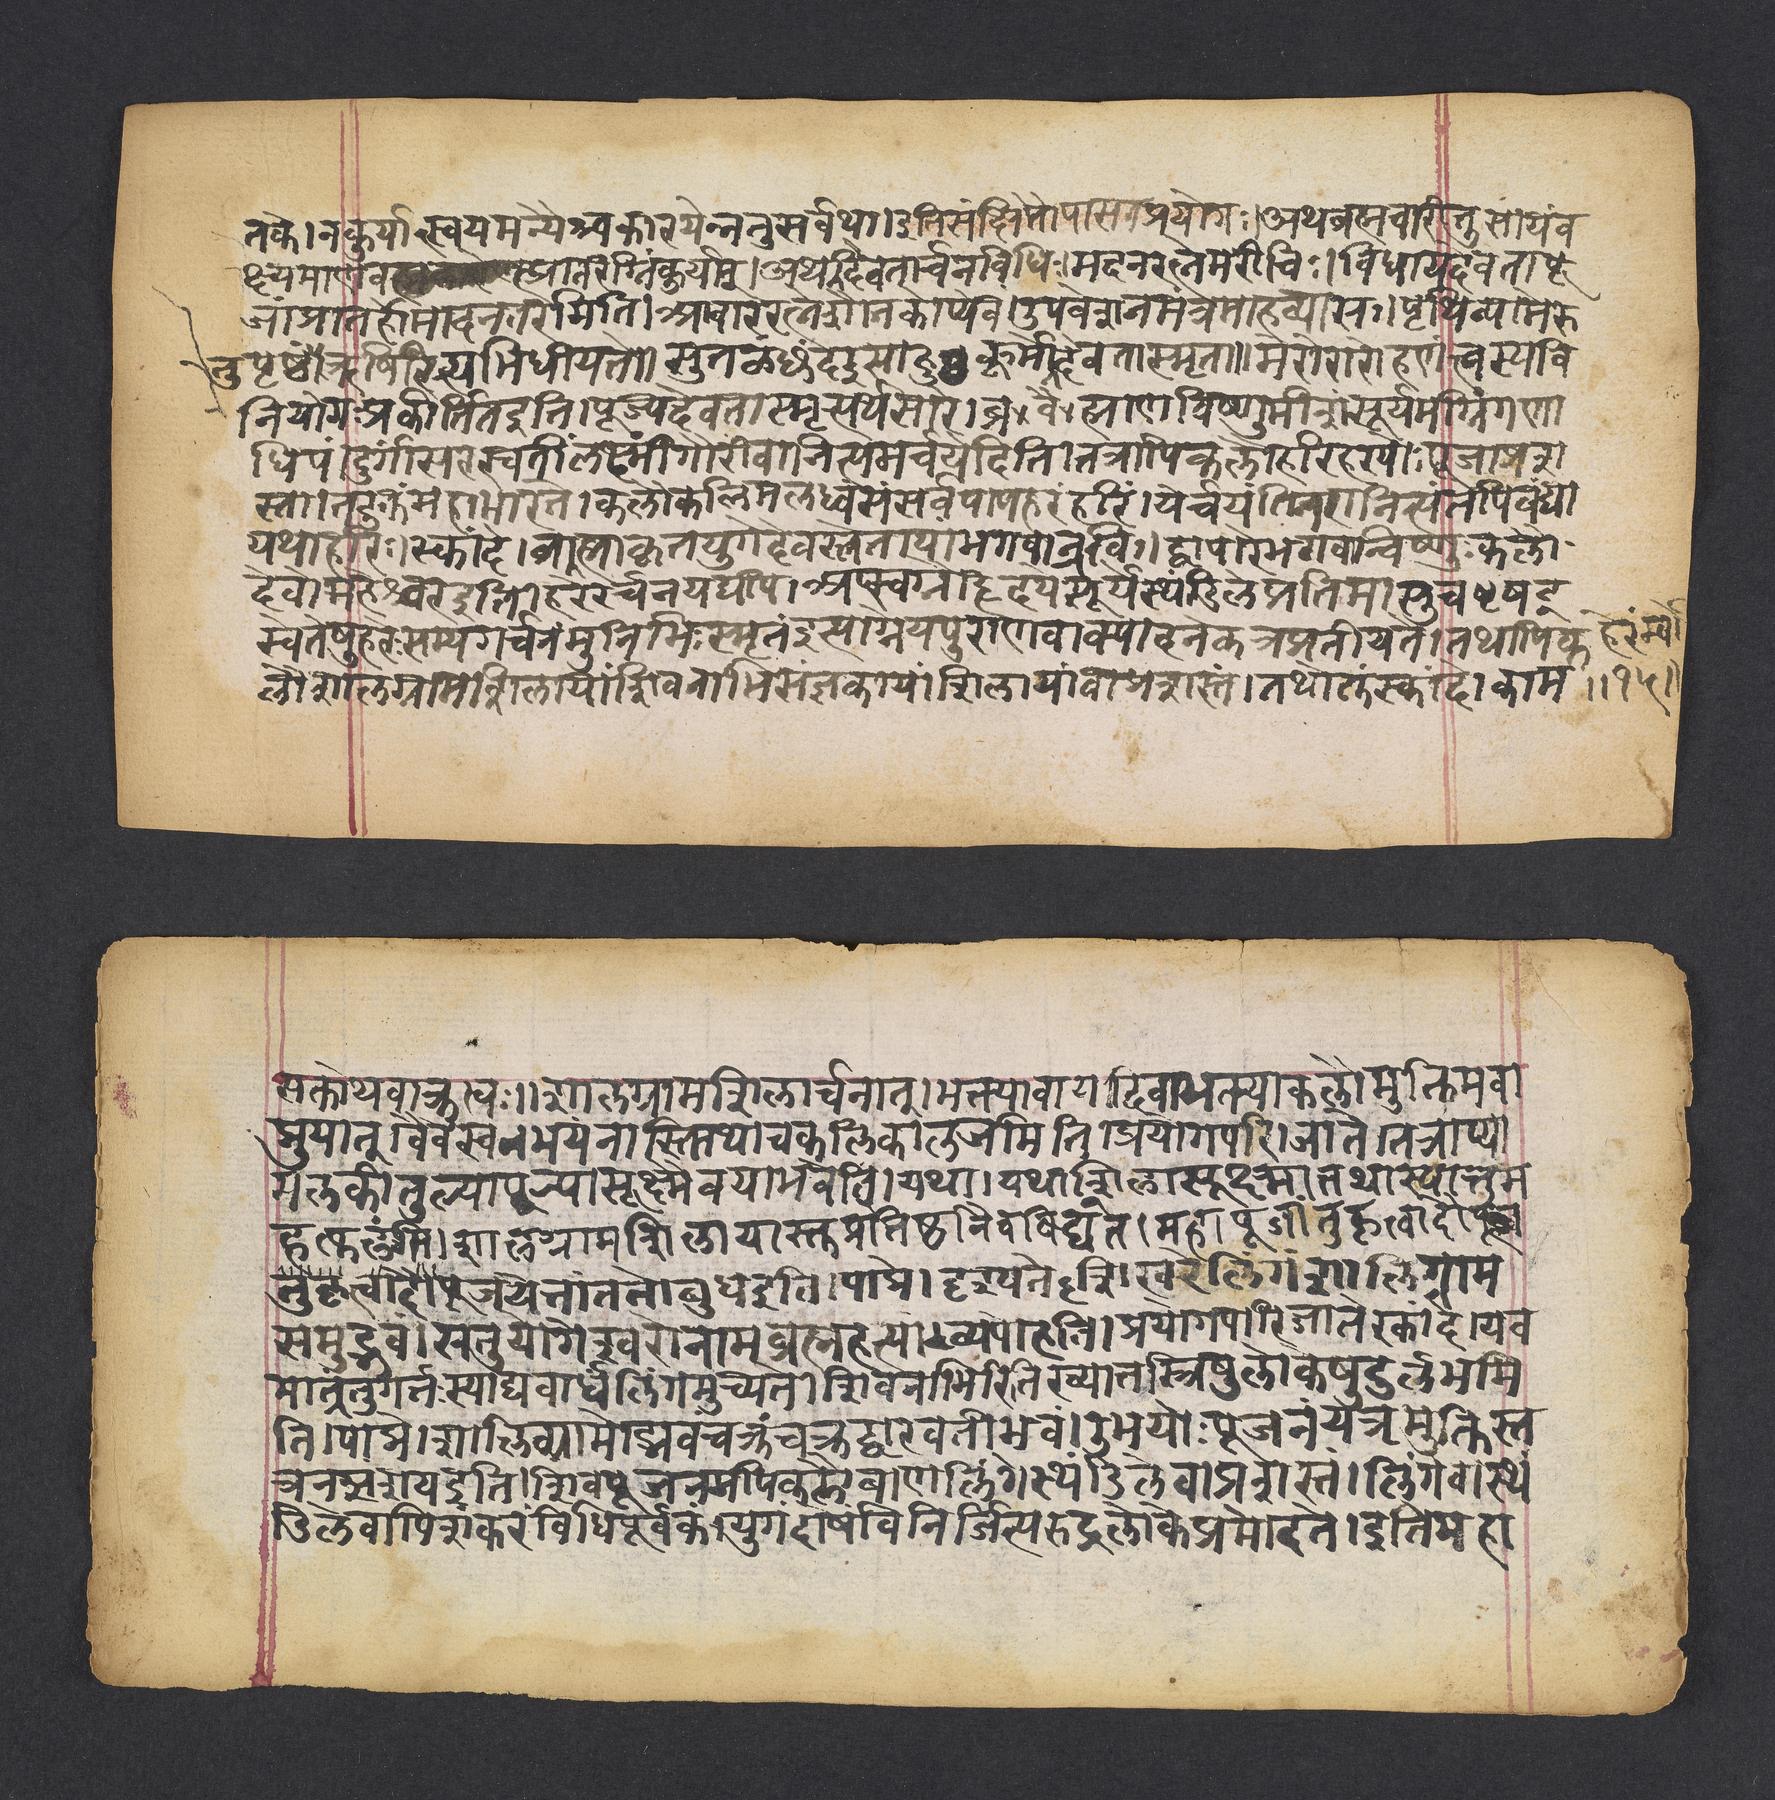 तकं। न कुर्यात्स्वयमन्यैश्च कारयेन्न तु सर्वथा। इति संक्षिप्तोपासनप्रयोगः। अथ ब्रह्मचारी तु सायं व
क्ष्यमाण प्रातरग्निं कुर्यात्। अथ देवतार्चनविधिः। मदनरत्ने मरीचिः। विधाय देवतापू
जां प्रातर्होमादनंतरमिति। आचाररत्ने शौनकोप्येवं। उपवेशनमंत्रमाह व्यासः। पृथिव्या मेरु
पृष्ठ ऋषिरित्यभिधीयते॥ सुतळं छंद कूर्मो देवता स्मृता॥ मेरोरारोहणं त्वस्य वि
नियोगः प्रकीर्तित इति। पूज्यदेवता स्मृत्यर्थसारे। ब्रह्माणं विष्णुमीशं सूर्यमग्निं गणा
धिपं। दुर्गां सरस्वतीं लक्ष्मीं गौरीं वा नित्यमर्चयेदिति। तत्रापि कलौ हरिहरयोः पूजा प्रश
स्ता। तदुक्तं महाभारते। कलौ कलिमलध्वंसं सर्वपापहरं हरिं। येर्चयंति नरा नित्यं तेपि वंद्या
यथा हरिः। स्कांदे। ब्रह्मा कृतयुगे देवस्त्रेतायां भगवान्रविः। द्वापरे भगवान्विष्णुः कलौ
देवो महेश्वर इति। हरेरर्चनं यद्यपि। अप्स्वग्नौ हृदये सूर्ये स्थंडिले प्रतिमासु च। षट्
स्वेतेषु हरेः सम्यगर्चनं मुनिभिः स्मृतं। इत्याग्नेयपुराणवाक्यादनेकत्र प्रतीयते। तथापि क
लौ शालग्रामशिलायां शिवनाभिसंज्ञकायां शिलायां वा प्रशस्तं। तथोक्तं स्कांदे। काम
॥१५॥
सक्तोथवा क्रुद्धः॥ शालग्रामशिलार्चनात्। भक्त्या वा यदि वाभक्त्या कलौ मुक्तिमवा
प्नुयात्। वैवस्वतभयं नास्ति तथा च कलिकालजमिति। प्रयोगपारिजाते। तत्राप्या
मलकीतुल्या पूज्या सूक्ष्मैव या भवेति। यथा यथा शिला सूक्ष्मा तथा स्यात्तु म
हत्फलमिति। शालग्रामशिलायास्तु प्रतिष्ठा नैव विद्यते। महापूजां तु कृत्वादौ
तु कृत्वादौ पूजयेत्तां ततो बुध इति। पाद्मे। दृश्यते शिखरे लिंगं शालिग्राम
समुद्भवं। स तु योगेश्वरो नाम ब्रह्महत्यां व्यपोहति। प्रयोगपारिजाते स्कांदे। यव
मात्रं तु गर्तः स्याद्यवार्धं लिंगमुच्यते। शिवनाभिरिति ख्यातस्त्रिषु लोकेषु दुर्लभमि
ति। पाद्मे। शालिग्रामोद्भवं चक्रं चक्रं द्वारवतीभवं। उभयोः पूजनं यत्र मुक्तिस्त
त्र न संशय इति। शिवपूजनमपि कलौ बाणलिंगे स्थंडिले वा प्रशस्तं। लिंगे वा स्थं
डिले वापि शंकरं विधिपूर्वकं। युगदोषं विनिर्जित्य रुद्रलोके प्रमोदते। इति महा